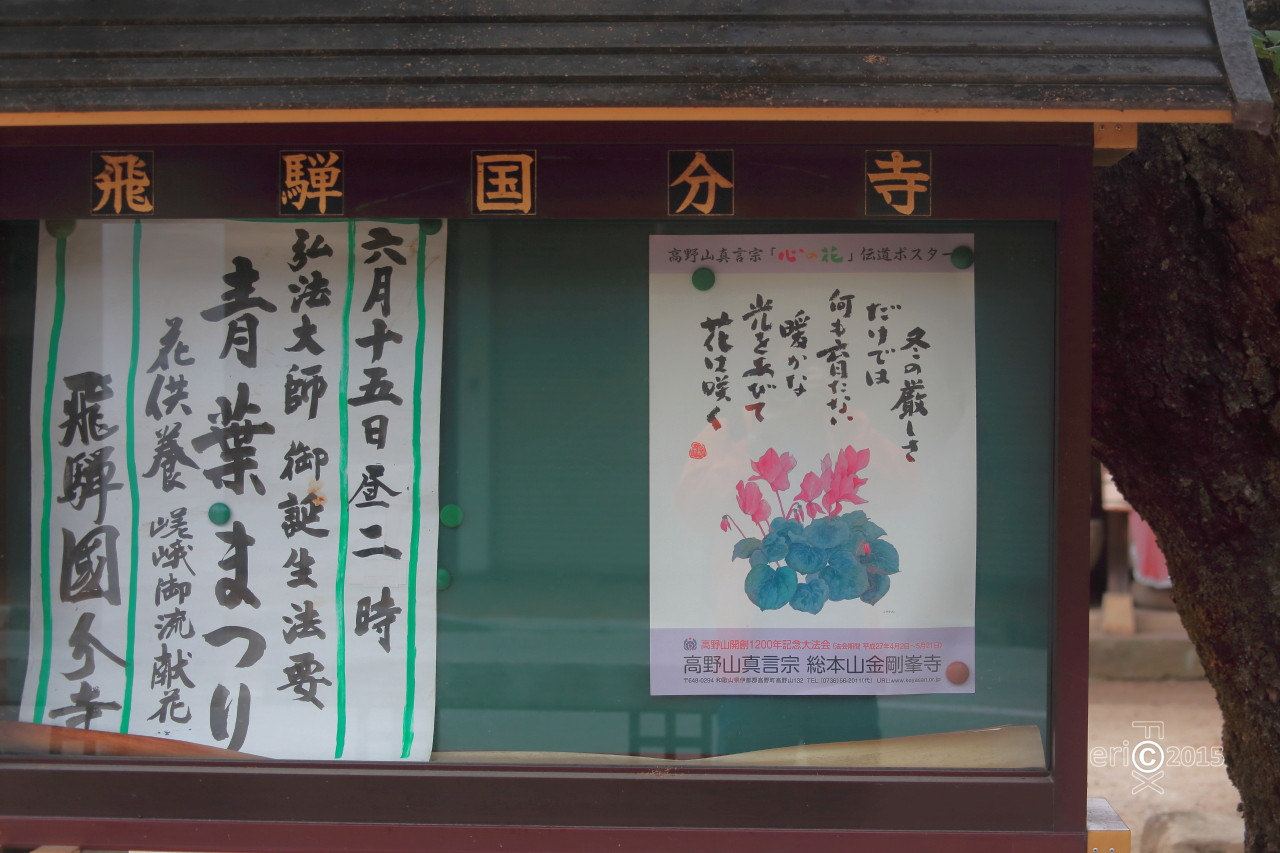 飛騨国分寺
六月十五日昼二時
弘法大師 御誕生法要
青葉まつり
花供養 嵯峨御流献花
飛騨國分寺
高野山真言宗「心の花」伝道ポスター
冬の厳しさ
だけでは
何も育たない
暖かな
光を亙びて
花は咲く
高野山開創1200年記念大法会 (法会期間 平成27年4月2日~5月21日)
高野山真言宗 総本山金剛峯寺
〒648-0294 和歌山県伊都郡高野町高野山132 TEL (0736) 56-2011(代) URL www.koyasan.or.jp
eric FOX ©2015